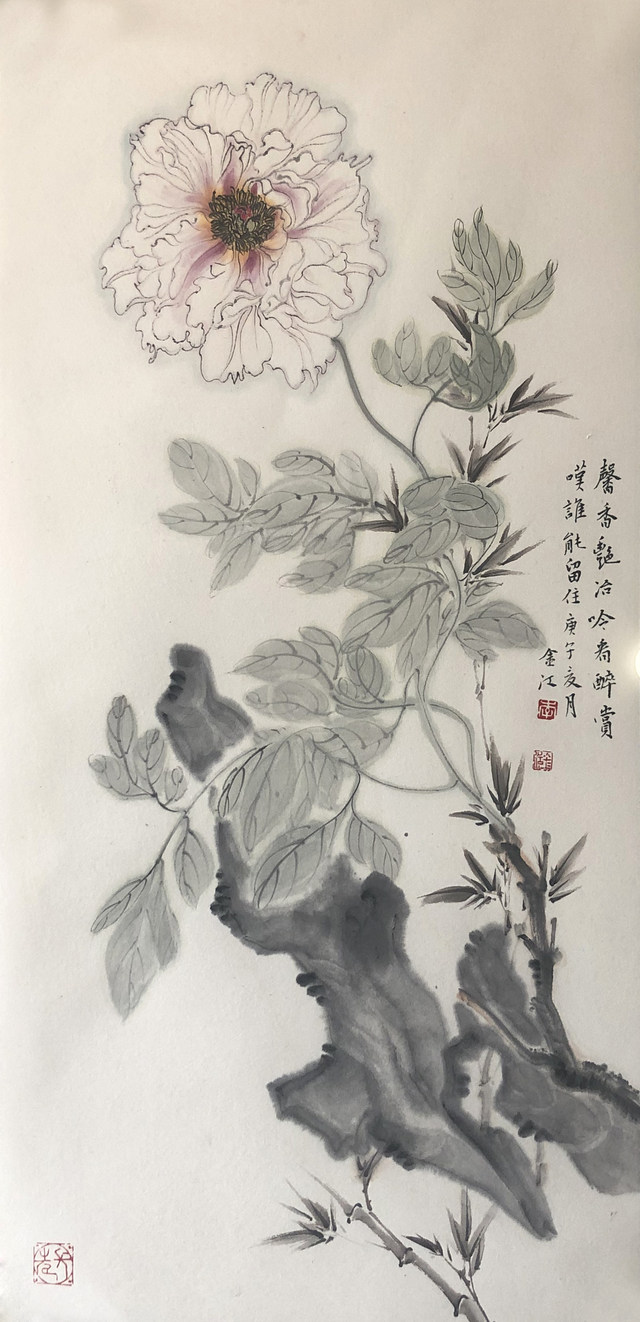 馨香艷冶吟看醉賞
嘆誰能留住庚午亥月
金江